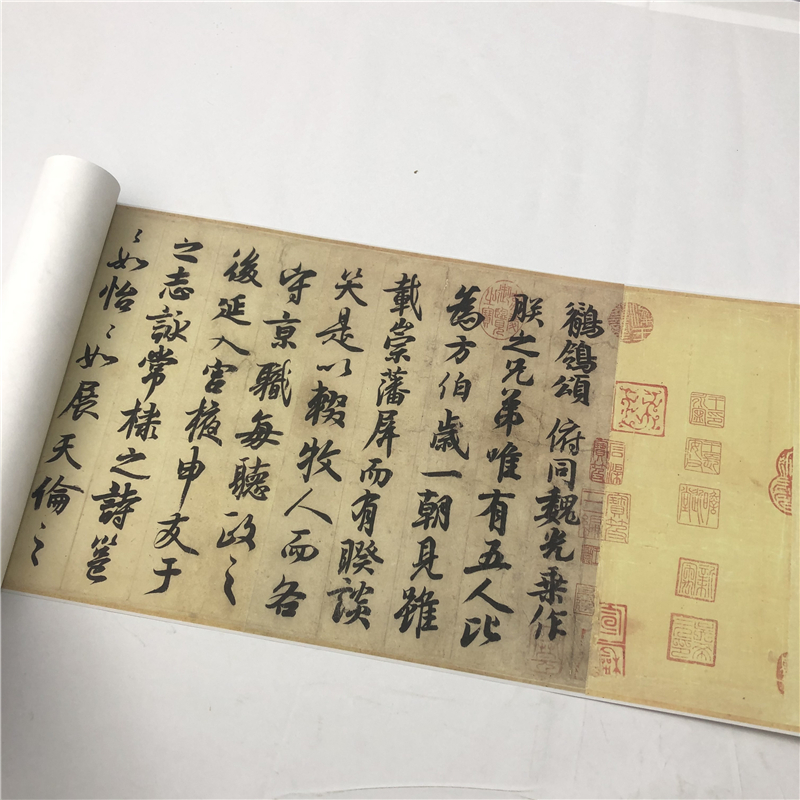 鶺鴒頌 俯同魏光乘作
朕之兄弟唯有五人比
爲方伯歲一朝見雖
載崇藩屏而有睽談
笑是以輟牧人而各
守京職每聽政之
後延入宮掖申友于
之志詠常棣之詩邕
〻如怡〻如展天倫之